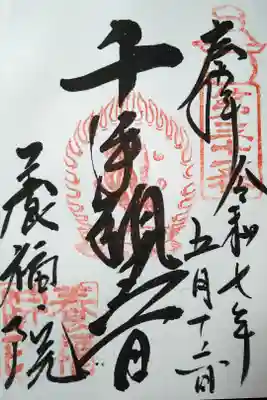 奉拝
令和七年
五月十二日
千手観音
養福院